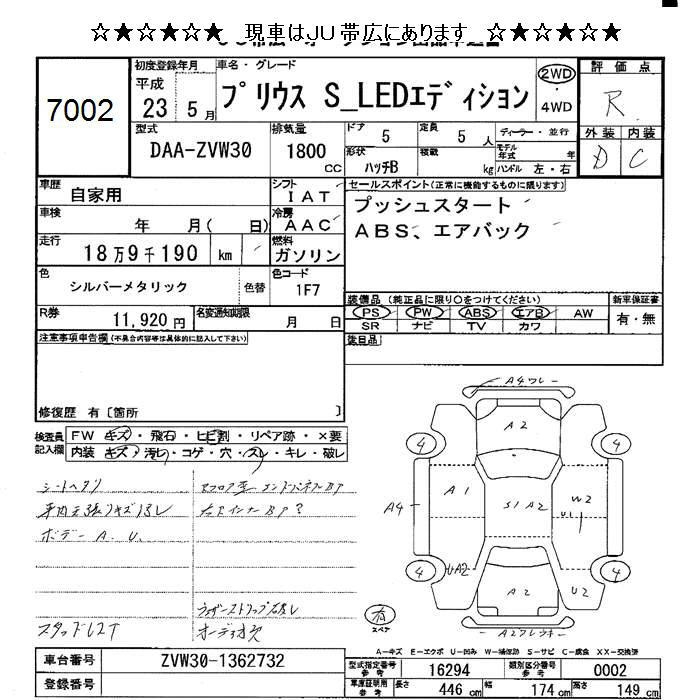 ☆★☆★☆★☆ 現車はJU帯広にあります ☆★☆★☆★☆
7002
初度登録年月
平成
23 5 月
車名・グレード
プリウス S_LEDエディション
2WD
・
4WD
評価点
R
外装 内装
D C
型式
DAA-ZVW30
排気量
1800
CC
ドア
5
定員
5 人
形状
ハッチB
積載
kg
ディーラー・並行
モデル
年式 年
ハンドル 左・右
車歴
自家用
シフト
IAT
車検
年 月( 日)
冷房
AAC
走行
18万9千190 km
燃料
ガソリン
色
シルバーメタリック
色替
色コード
1F7
R券
11,920円
名変通知期限
月 日
セールスポイント(正常に機能するものに限ります)
プッシュスタート
ABS、エアバック
装備品(純正品に限り○をつけてください)
PS PW ABS エアB AW
SR ナビ TV カワ
新車保証書
有・無
後日品
注意事項申告欄(不具合内容等は具体的に記入して下さい)
修復歴 有〔箇所 〕
検査員
記入欄
FW キズ・飛石・ヒビ割・リペア跡・×要
内装 キズ・汚れ・コゲ・穴・スレ・キレ・破レ
シートヘタリ
ボデー A. U.
スタッドレスT
オーディオ欠
A4ワレ
A2
4 4
A1
S1A2
W2
U1
A4
4 4
UA2
U2
A2
有
スペア
A-キズ E-エクボ U-凹み W-補修跡 S-サビ C-腐食 XX-交換済
車台番号
ZVW30-1362732
登録番号
型式指定番号
参考
16294
類別区分番号
参考
0002
車庫証明用
参考
長さ 446 cm
幅 174 cm
高さ 149 cm